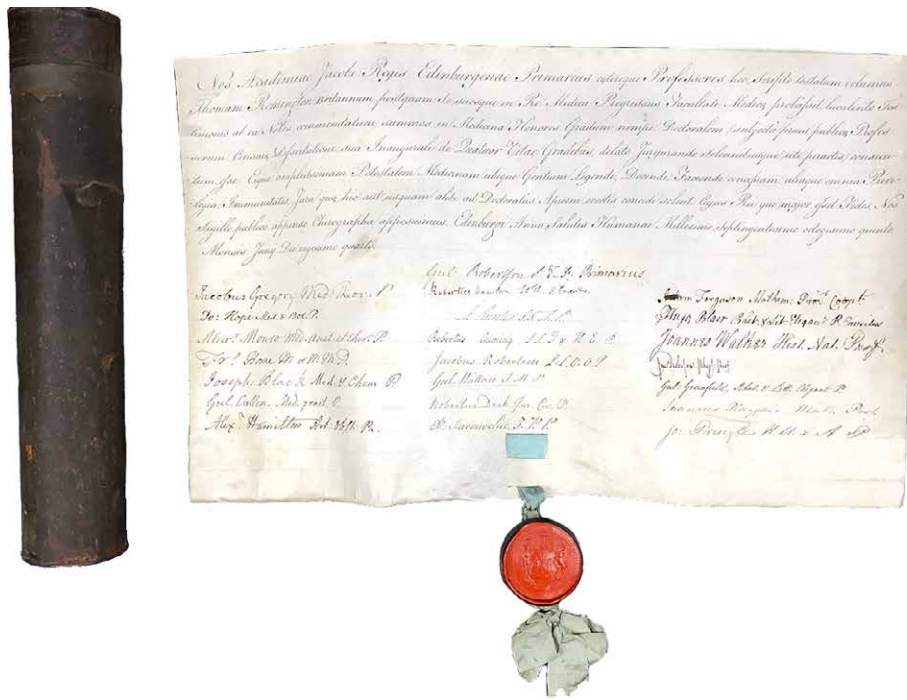 Nos Academiae Jacobi Regis Edinburgenae Primarius caeterique Professores hoc scripto testatum volumus
Thomam Remington Britannum postquam se suosque in Re Medica Progressus Facultati Medicae probasset, luculento Tes
timonio ad ea Nobis commendatum summos in Medicina Honores Gradum nempe Doctoralem, subjecta prius publice Profes
sorum Examini Dissertatione sua Inaugurali de Quatuor Vitae Gradibus, delato Jurejurando Solennibusque rite peractis; consecu
tum esse. Eique amplissimam Potestatem Medicinam ubique Gentium Legendi, Docendi, Faciendi concessam aliaque omnia Privi
legia, Immunitates, Jura quae hic aut usquam alibi ad Doctoratus Apicem evectis concedi solent. Cujus Rei quo major esset Fides, Nos
Sigillo publico appenso Chirographa apposuimus. Edinburgi Anno Salutis Humanae Millesimo, Septingentesimo octogesimo quinto
Mensis Junij vigesimo quarto
Gul Robertson S.T.P. Primarius
Jacobus Gregory Med. Theor. P.
Jo: Hope Med. & Bot. P.
Alexr. Monro Med. Anat. et Chir. P.
Frs. Home M. D.
Joseph Black Med. & Chem P.
Gul. Cullen Med. pract. P.
Alexr. Hamilton Art. Obst. P.
Robertus Hamilton
A. Hunter S.T.P.
Robertus Cuming S.T.D & H.E.P.
Jacobus Robertson L.L.O.O.P
Gul. Wallace
Robertus Dick Jur. Civ. P.
Adam Ferguson Mathem.
Hugo Blair Rhet. & Lit. Elegant. P.
Joannes Walker Hist. Nat. Prof.
Gul. Greenfield, Rhet. & Litt. Elegant. P.
Joannes Playfair Math. Prof.
Jo: Pringle